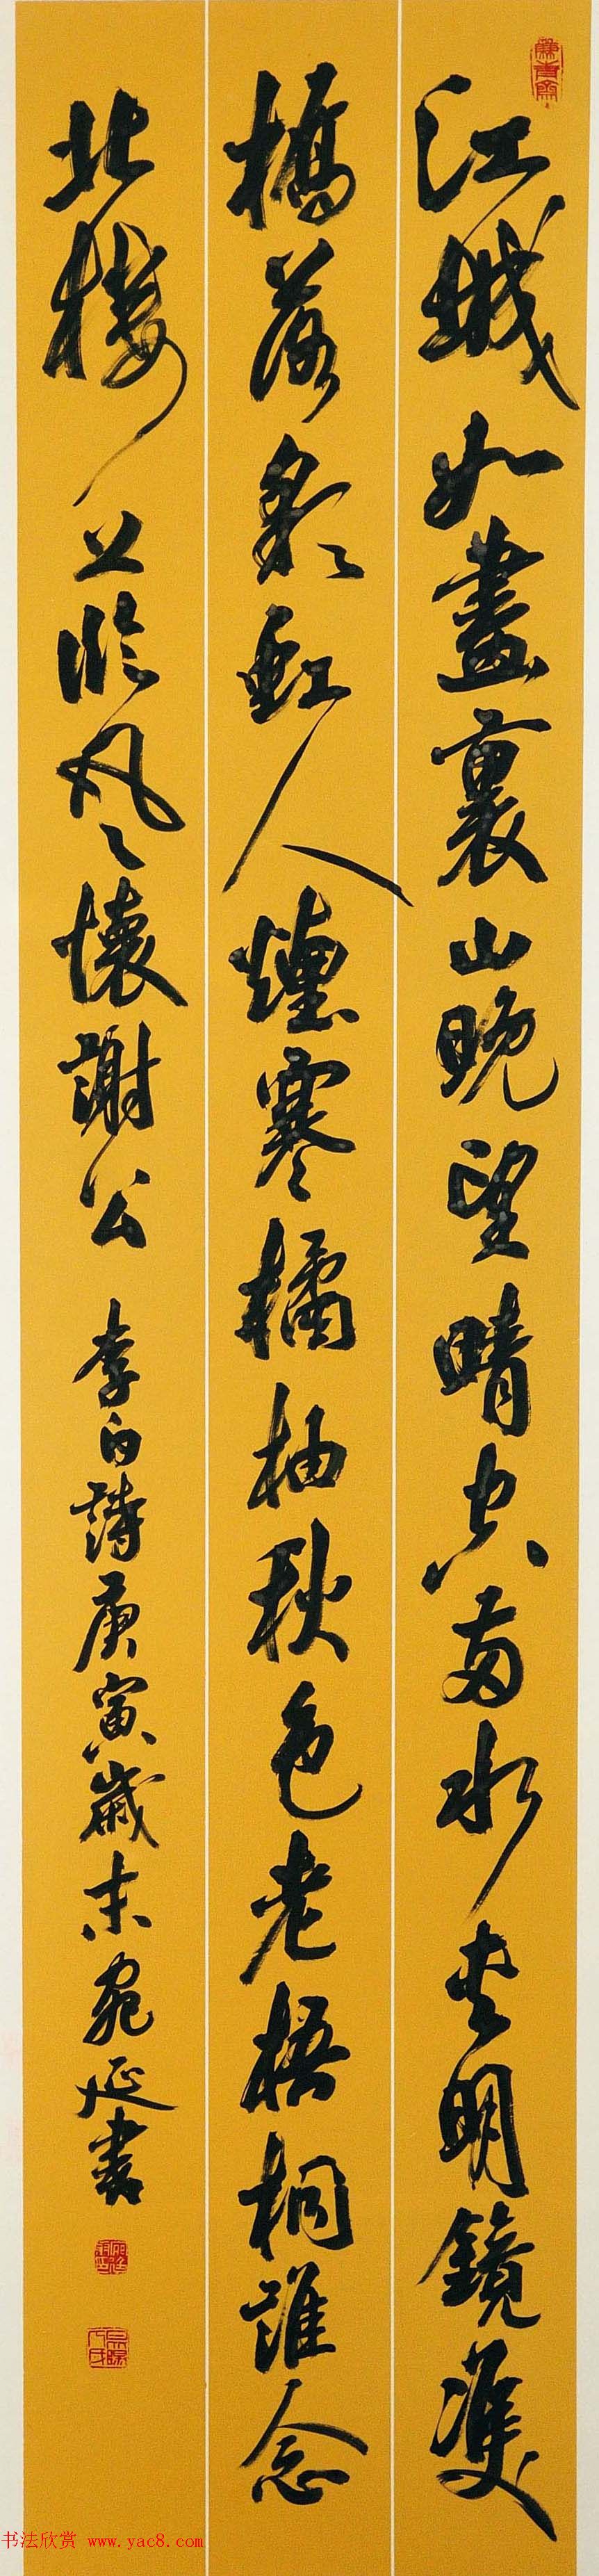 江城如畫裏山晚望晴空兩水夾明鏡雙
橋落彩虹人煙寒橘柚秋色老梧桐誰念
北樓上臨風懷謝公 李白詩庚寅歲末宛延書
书法欣赏 www.yac8.com